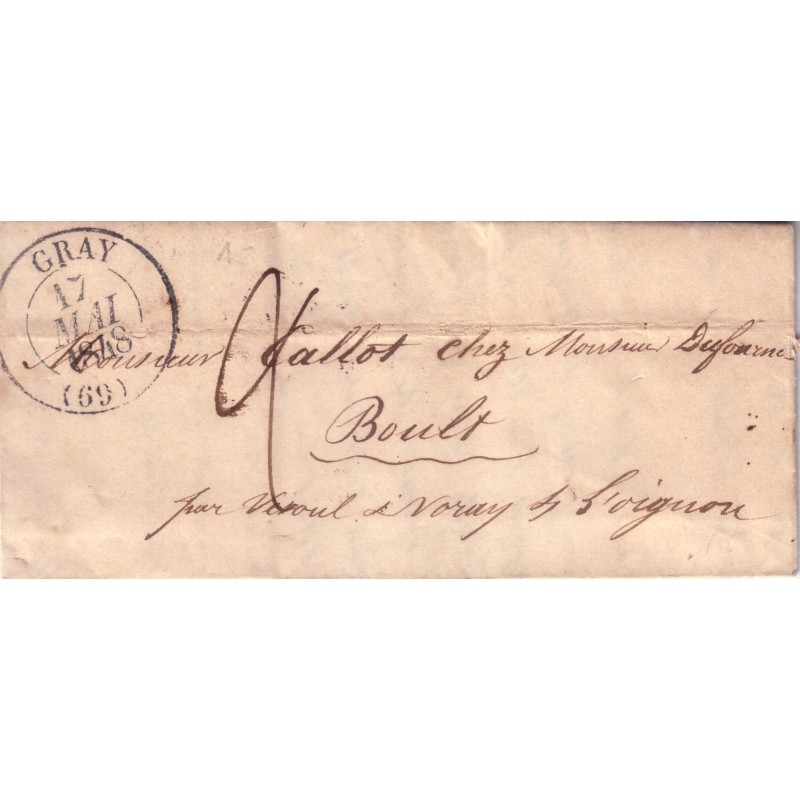 GRAY
17
MAI
1848
(69)
Monsieur Vallot chez Monsieur Dufourne
Boult
par Vesoul & Voray s/ l'oignon